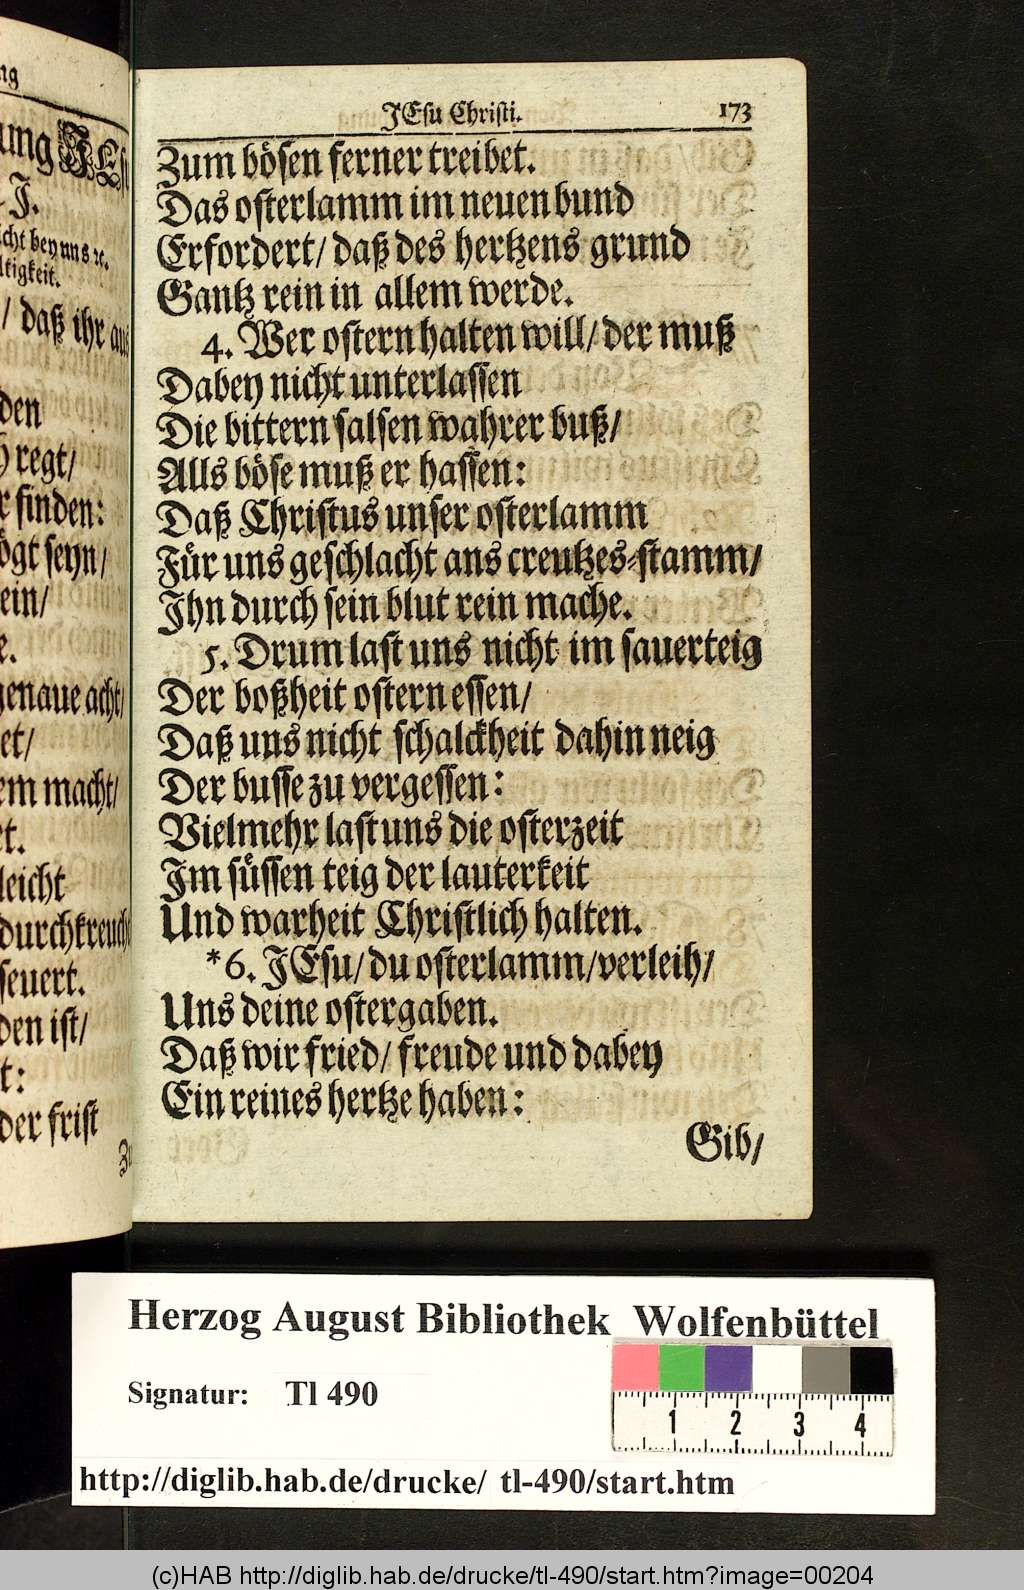 JEsu Christi. 173
Zum bösen ferner treibet.
Das osterlamm im neuen bund
Erfordert/ daß des hertzens grund
Gantz rein in allem werde.
4. Wer ostern halten will/ der muß
Dabey nicht unterlassen
Die bittern salsen wahrer buß/
Alls böse muß er hassen:
Daß Christus unser osterlamm
Für uns geschlacht ans creutzes-stamm/
Ihn durch sein blut rein mache.
5. Drum last uns nicht im sauerteig
Der boßheit ostern essen/
Daß uns nicht schalckheit dahin neig
Der busse zu vergessen:
Vielmehr last uns die osterzeit
Im süssen teig der lauterkeit
Und warheit Christlich halten.
*6. JEsu/ du osterlamm/ verleih/
Uns deine ostergaben.
Daß wir fried/ freude und dabey
Ein reines hertze haben:
Gib/
/ daß ihr aus
den
regt/
finden:
seyn/
ein/
genaue acht/
et/
macht/
leicht
durchkreucht
feuert.
den ist/
t:
der frist
Herzog August Bibliothek Wolfenbüttel
Signatur: Tl 490
1 2 3 4
http://diglib.hab.de/drucke/ tl-490/start.htm
(c)HAB http://diglib.hab.de/drucke/tl-490/start.htm?image=00204